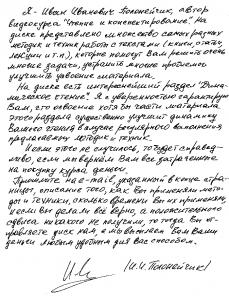 Я - Иван Иванович Полонейчик, автор
видеокурса "Чтение и конспектирование". На
диске представлено множество самых разных
методик и техник работы с текстами (книги, статьи,
лекции и т.п.), которые помогут Вам решить очень
многие задачи, устранить многие проблемы,
улучшить усвоение материала.
На диске есть интереснейший раздел "Дина-
мическое чтение". Я с уверенностью гарантирую
Вам, что освоение хотя бы части материала
этого раздела существенно улучшит динамику
Вашего чтения в случае регулярного выполнения
предлагаемых методик и техник.
Если этого не случилось, то будет справед-
ливо, если мы вернём Вам все затраченные
на покупку курса деньги.
Пришлите на e-mail, указанный в конце стра-
ницы, описание того, как Вы применяли мето-
ды и техники, сколько времени Вы их применяли,
и если Вы делали всё верно, а положительного
сдвига никакого не получили, то тогда Вы от-
правляете диск нам, а мы вышлем Вам Ваши
деньги любым удобным для Вас способом.
(И.И. Полонейчик)